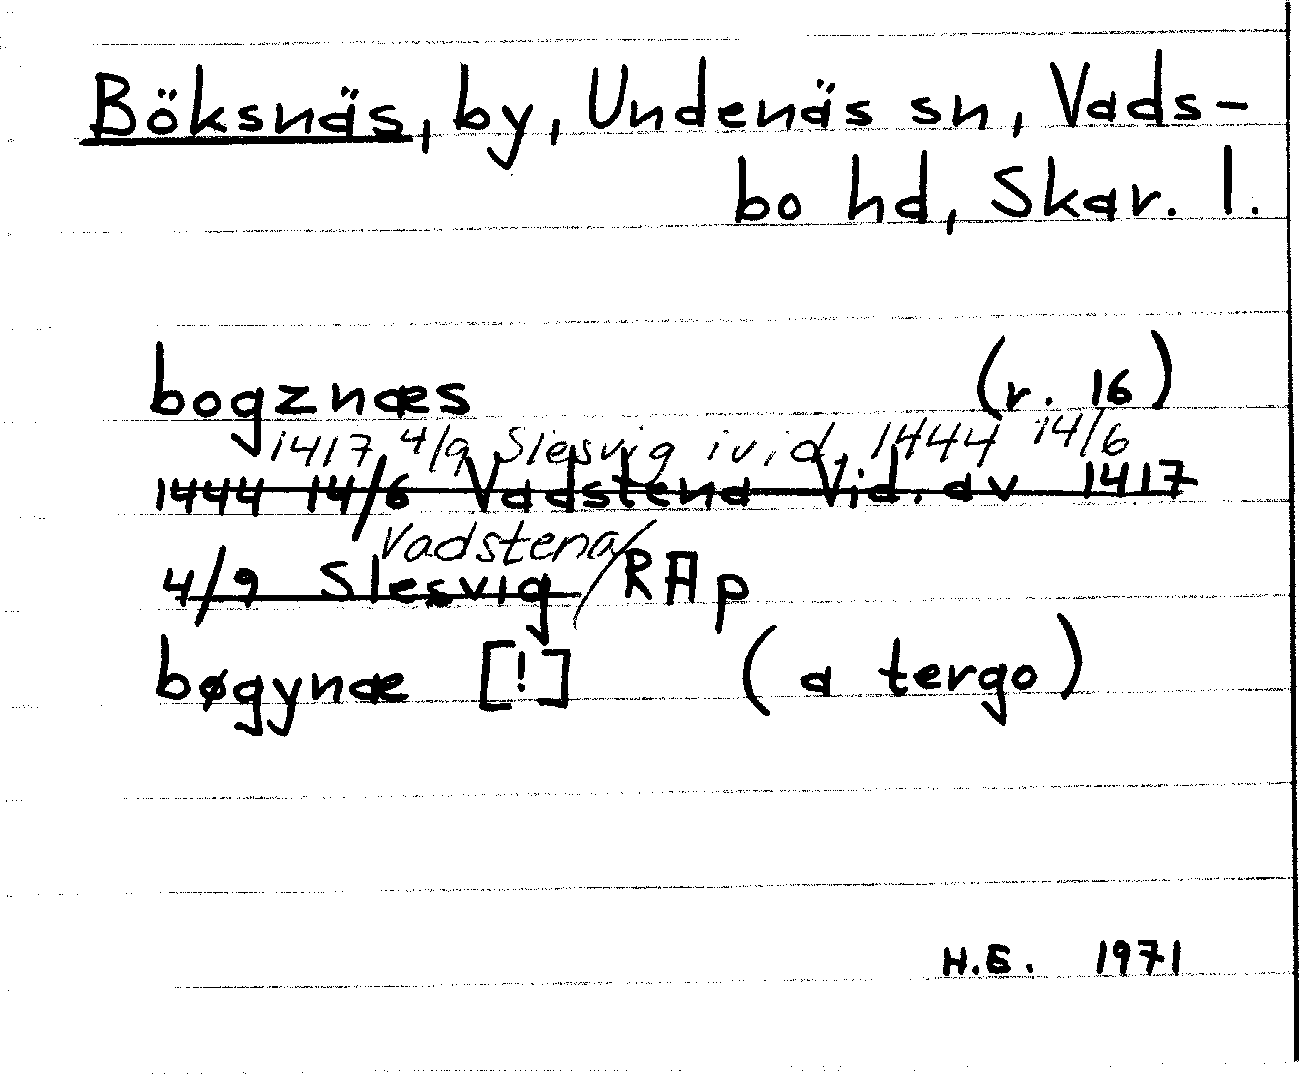 Böksnäs, by, Undenäs sn, Vads-
bo hd, Skar. l.
bogznæs (r. 16)
1417 4/9 Slesvig i vid. 1444 14/6
1444 14/6 Vadstena Vid. av 1417
Vadstena/
4/9 Slesvig RAp
bøgynæ [!] (a tergo)
H.E. 1971